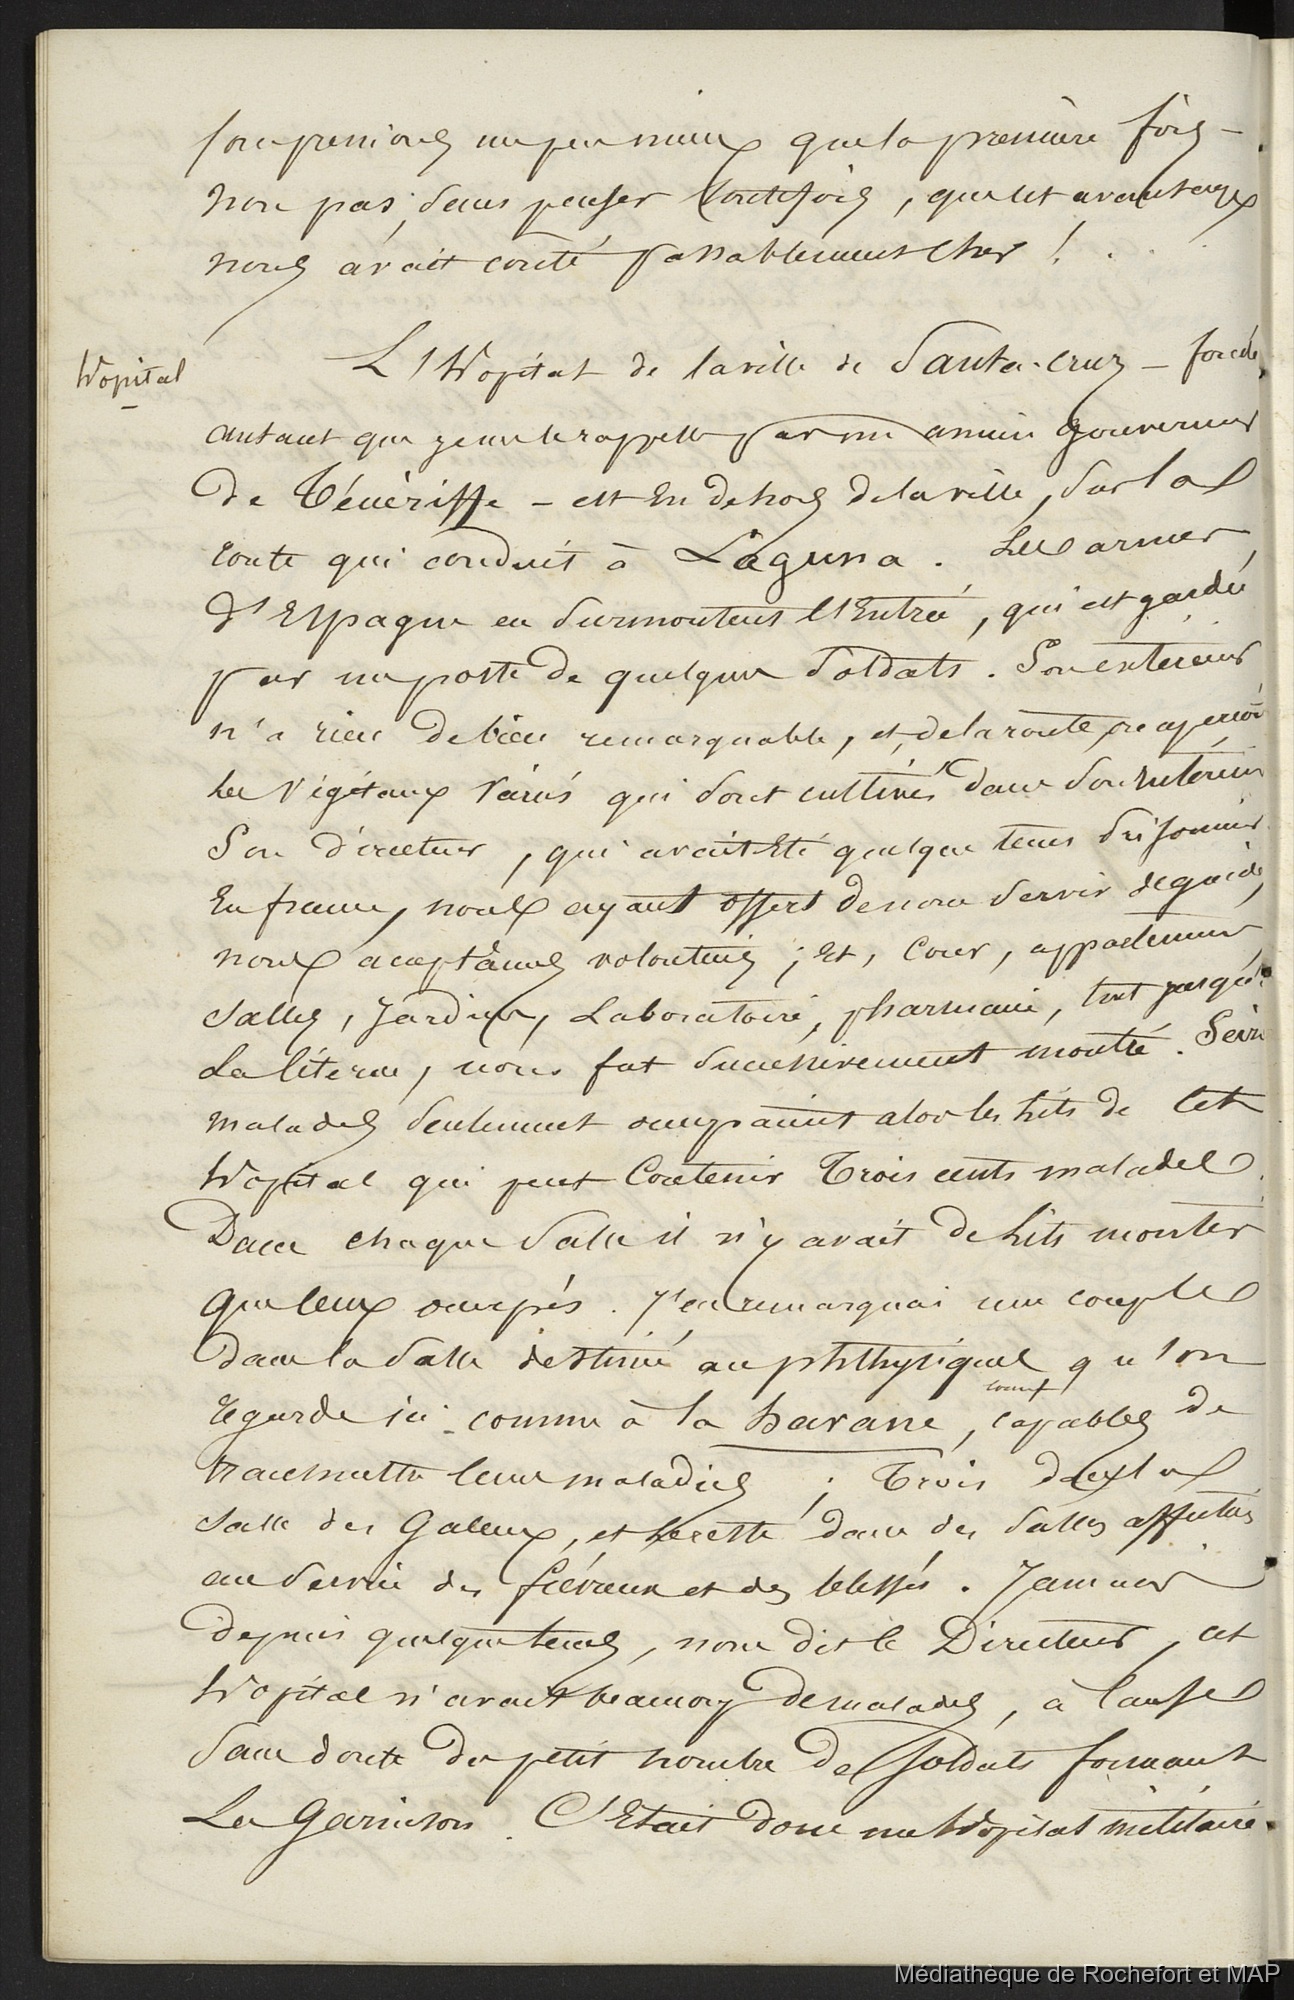 comprenions un peu mieux que la première fois –
non pas, sans penser toutefois, que cet avantage
nous avait couté passablement cher ! . .
hopital
L'hopital de la ville de Santa-cruz – fondé
autant que je me le rappelle par un ancien gouverneur
de Ténériffe – est en dehors de la ville, sur la
route qui conduit à Laguna. Les armes
d'Espagne en surmontent l'Entrée, qui est gardée
par un poste de quelques Soldats. Son exterieur
n'a rien de bien remarquable, et, de la route, on aperçoit
les végétaux variés qui sont cultivés dans son interieur
Son directeur, qui avait été quelque tems prisonnier
en france, nous ayant offert de nous servir de guide,
nous acceptâmes volontiers ; et, Cour, appartemens
salles, Jardins, Laboratoire, pharmacie, tout jusqu'à
La literie, nous fut successivement montré. Seize
malades seulement occupaient alors les lits de cet
hopital qui peut Contenir Trois cents malades.
Dans chaque salle il n'y avait de lits montés
que ceux occupés. J'en remarquai une couple
dans la salle destinée au phthysiques qu'l'on
regarde ici comme à la havane, comme capables de
transmettre leurs maladies ; Trois dans la
salle des Galeux, et le reste dans des salles affectées
au service des fiévreux et des blessés. Jamais
depuis quelque tems, nous dit le Directeur, cet
hopital n'avait beaucoup de malades, à cause
sans doute du petit nombre de soldats formant
La Garnison. C'Etait donc un hopital militaire.
Médiathèque de Rochefort et MAP